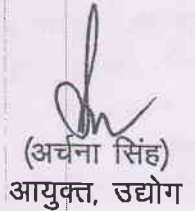 (अर्चना सिंह)
आयुक्त, उद्योग